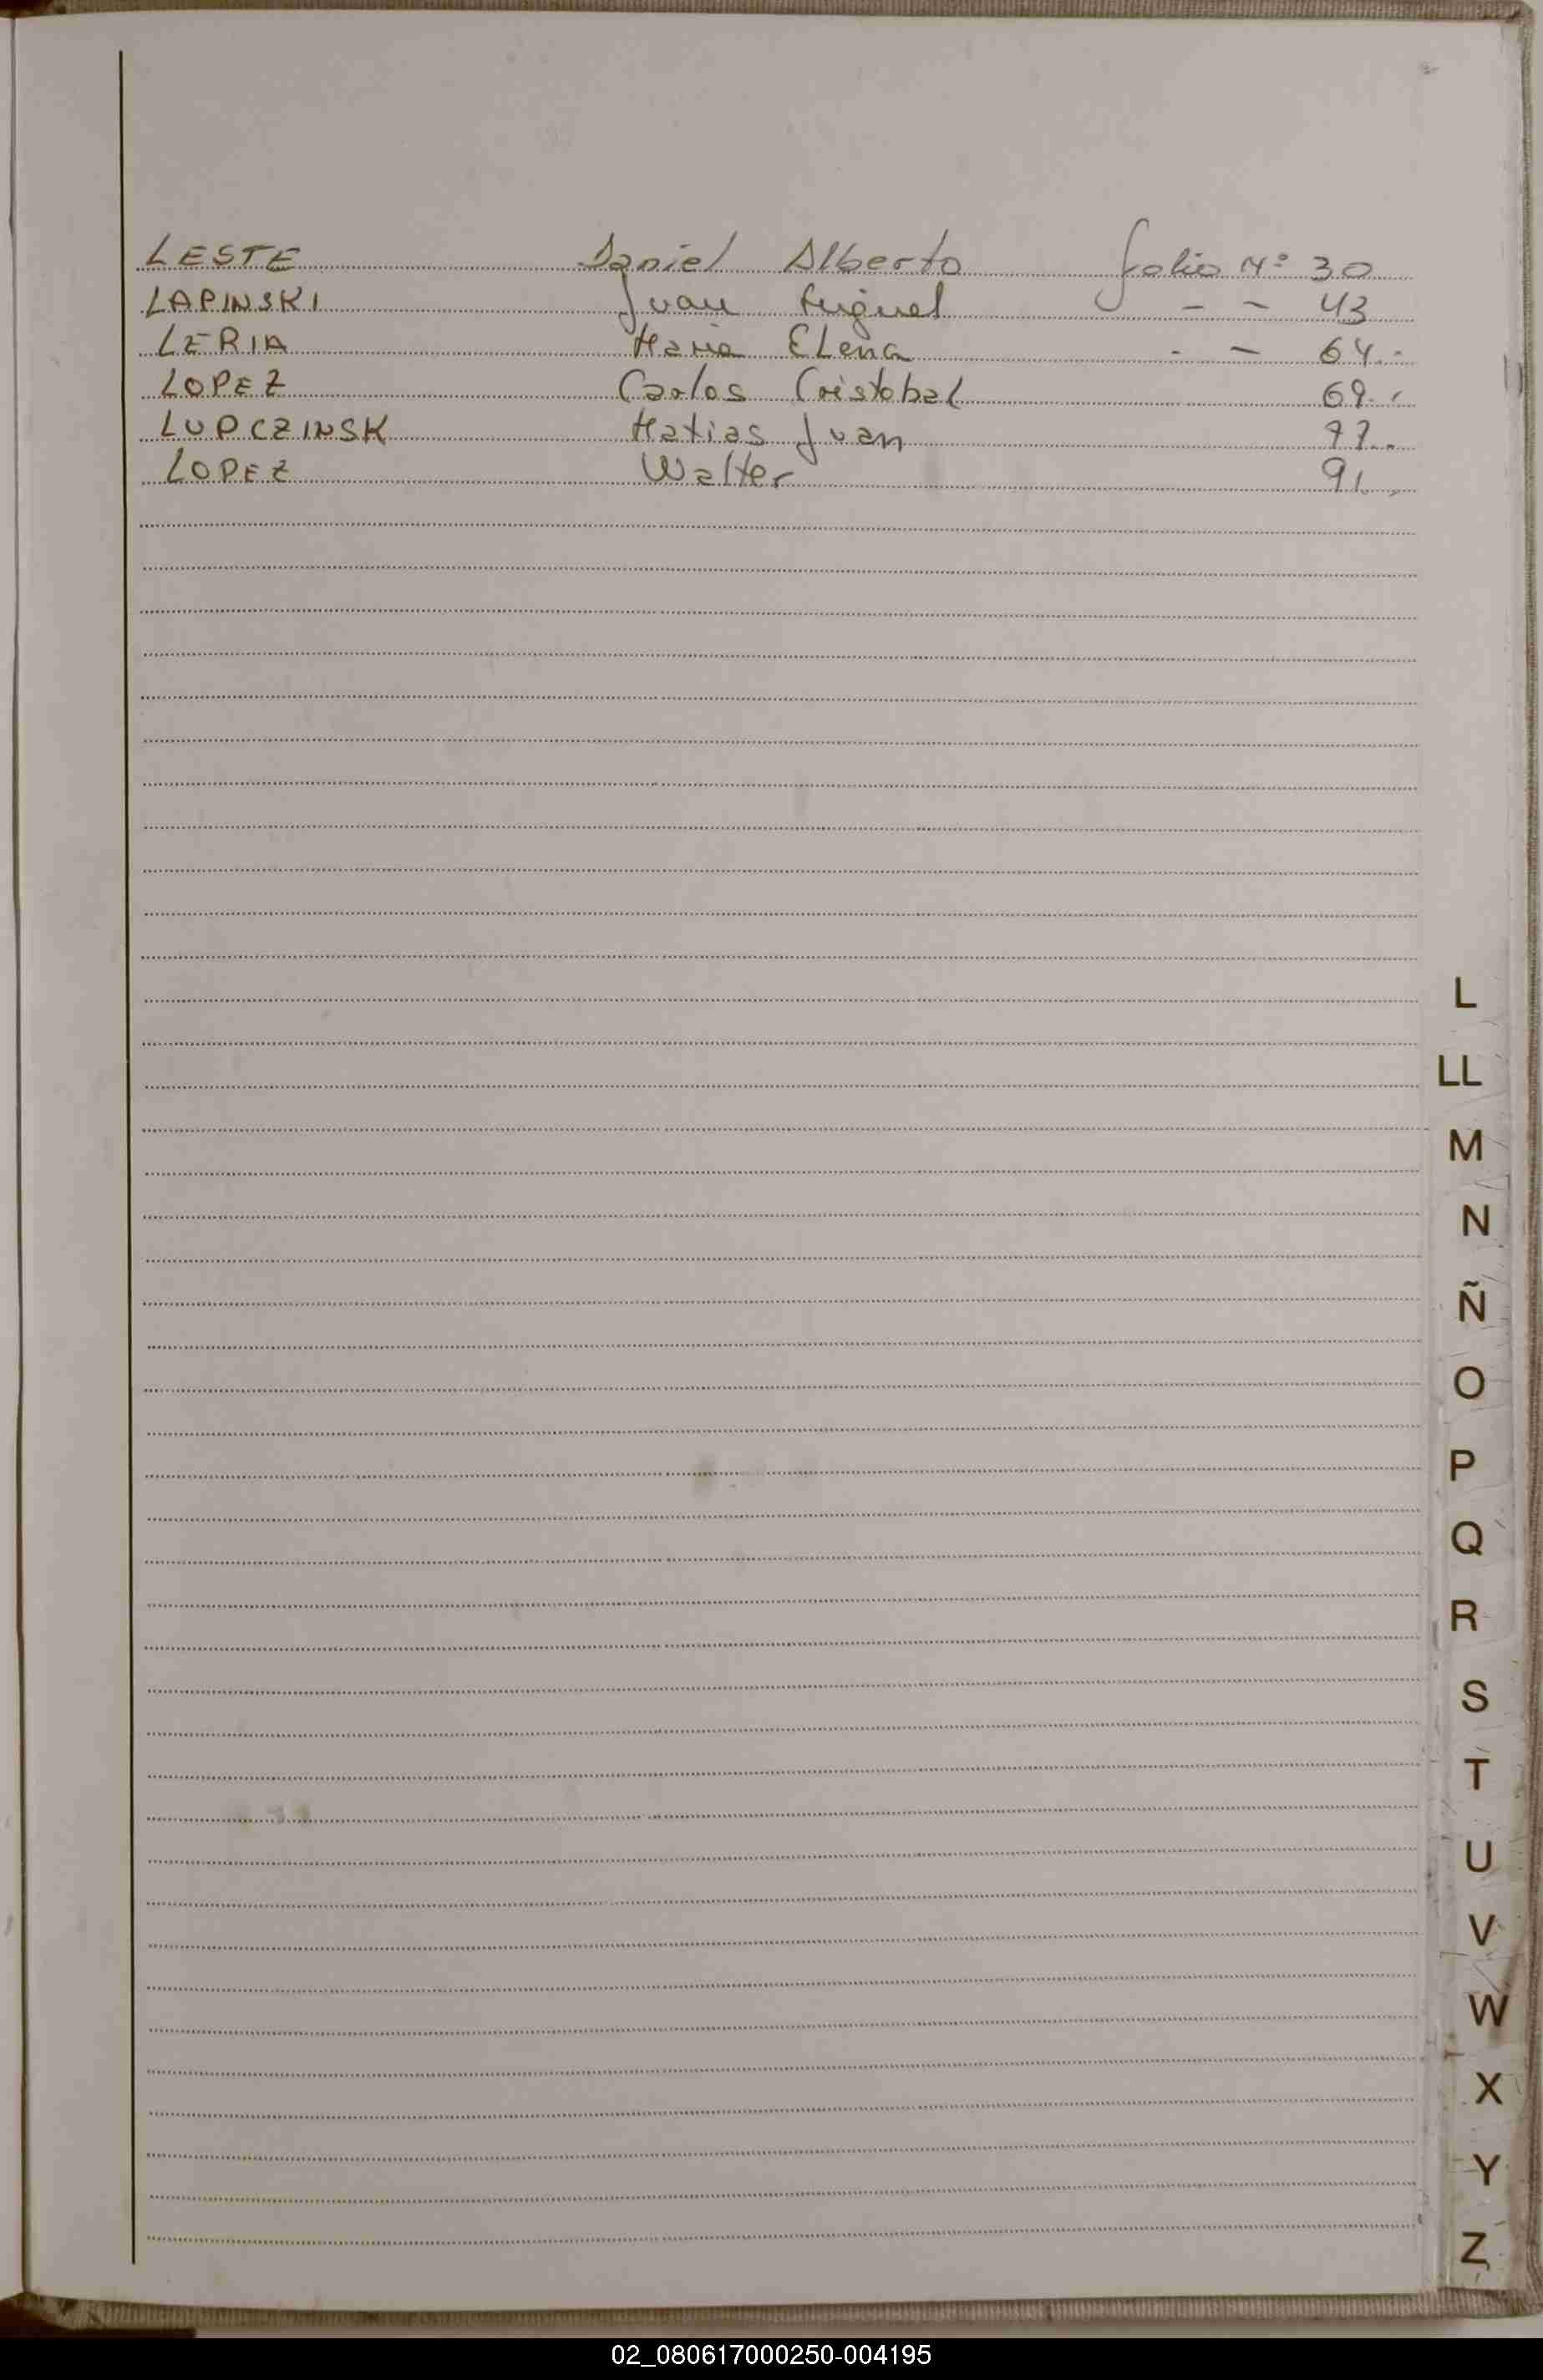 LESTE Daniel Alberto folio Nº 30
LAPINSKI Juan Miguel - - 43
LERIA Maria ELena - - 64.-
LOPEZ Carlos Cristobal 69.-
LUPCZINSK Matias Juan
LOPEZ Walter 91.-
L
LL
M
N
Ñ
O
P
Q
R
S
T
U
V
W
X
Y
Z
02_080617000250-004195